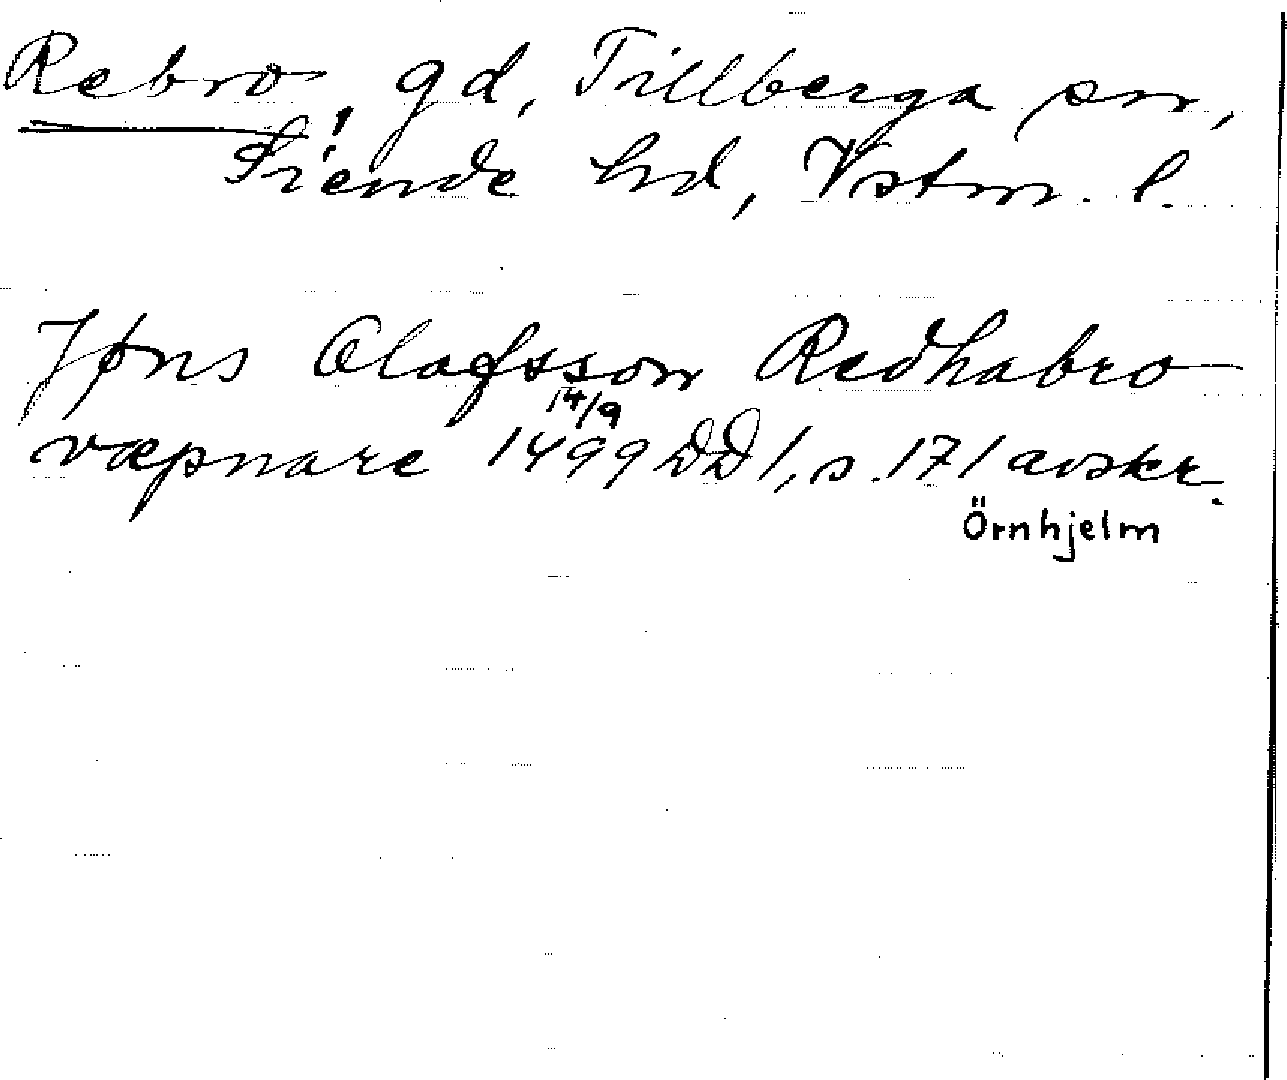 Rebro, gd, Tillberga sn,
Siende hd, Vstm. l.
Jøns Olafsson Redhabro
væpnare 14/9 1499 DD 1, s. 171 avskr.
Örnhjelm